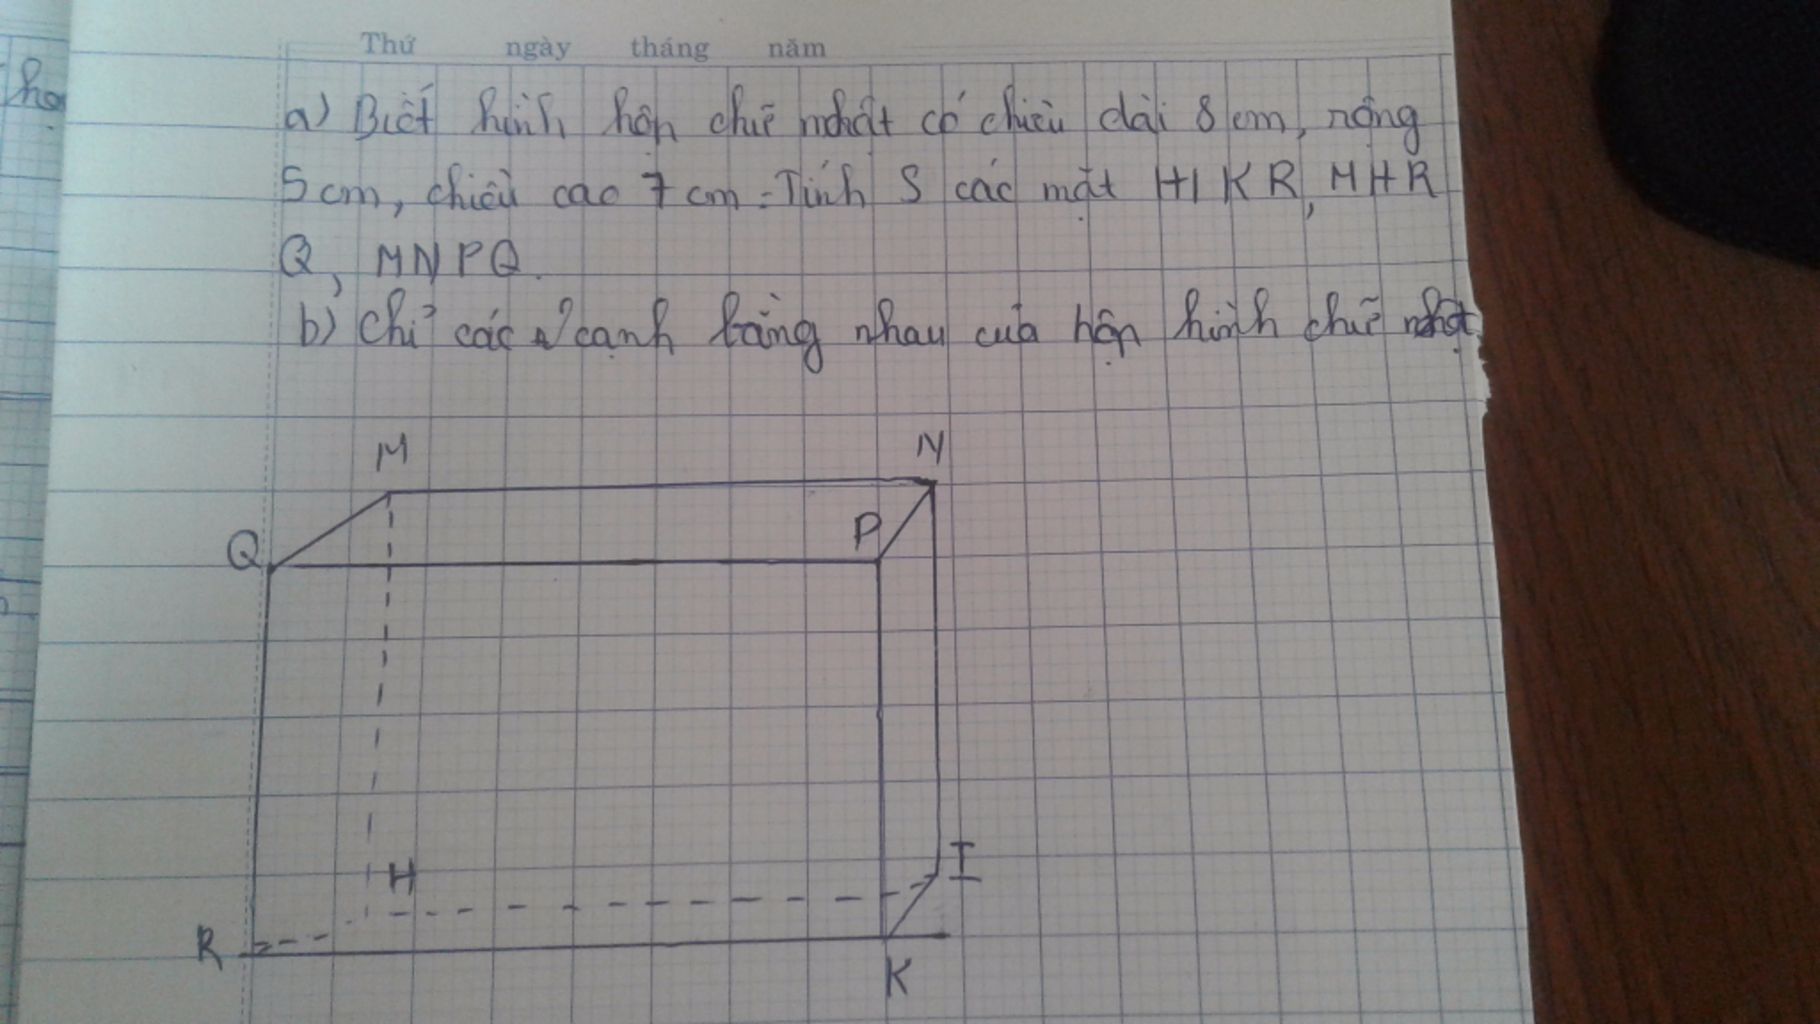 Thứ ngày tháng năm
a) Biết hình hộp chữ nhật có chiều dài 8 cm, rộng
5 cm, chiều cao 7 cm. Tính S các mặt HIKR, MHR
Q, MNPQ.
b) Chỉ các cạnh bằng nhau của hộp hình chữ nhật
M
N
Q
P
H
I
R
K